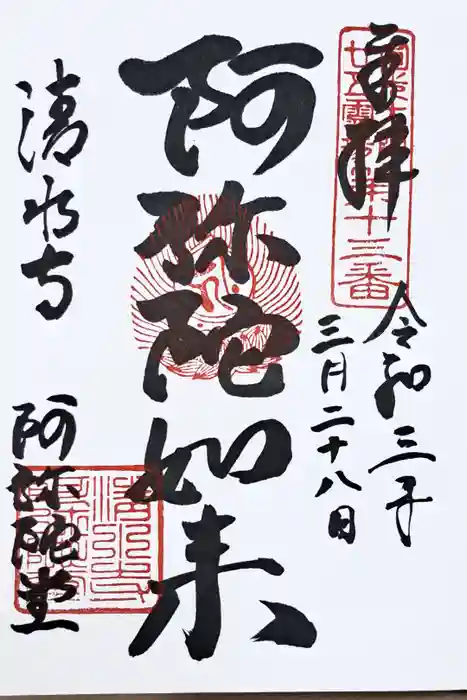 奉拝
第十三番
令和三年
三月二十八日
阿弥陀如来
清水寺
阿弥陀堂